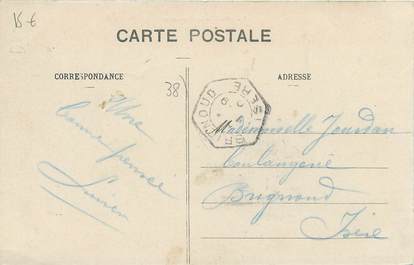 15 €
CARTE POSTALE
CORRESPONDANCE
ADRESSE
38)
ISERE
Une
bonne pensée
Mademoiselle Jourdan
Boulangerie
Brignoud
Isère